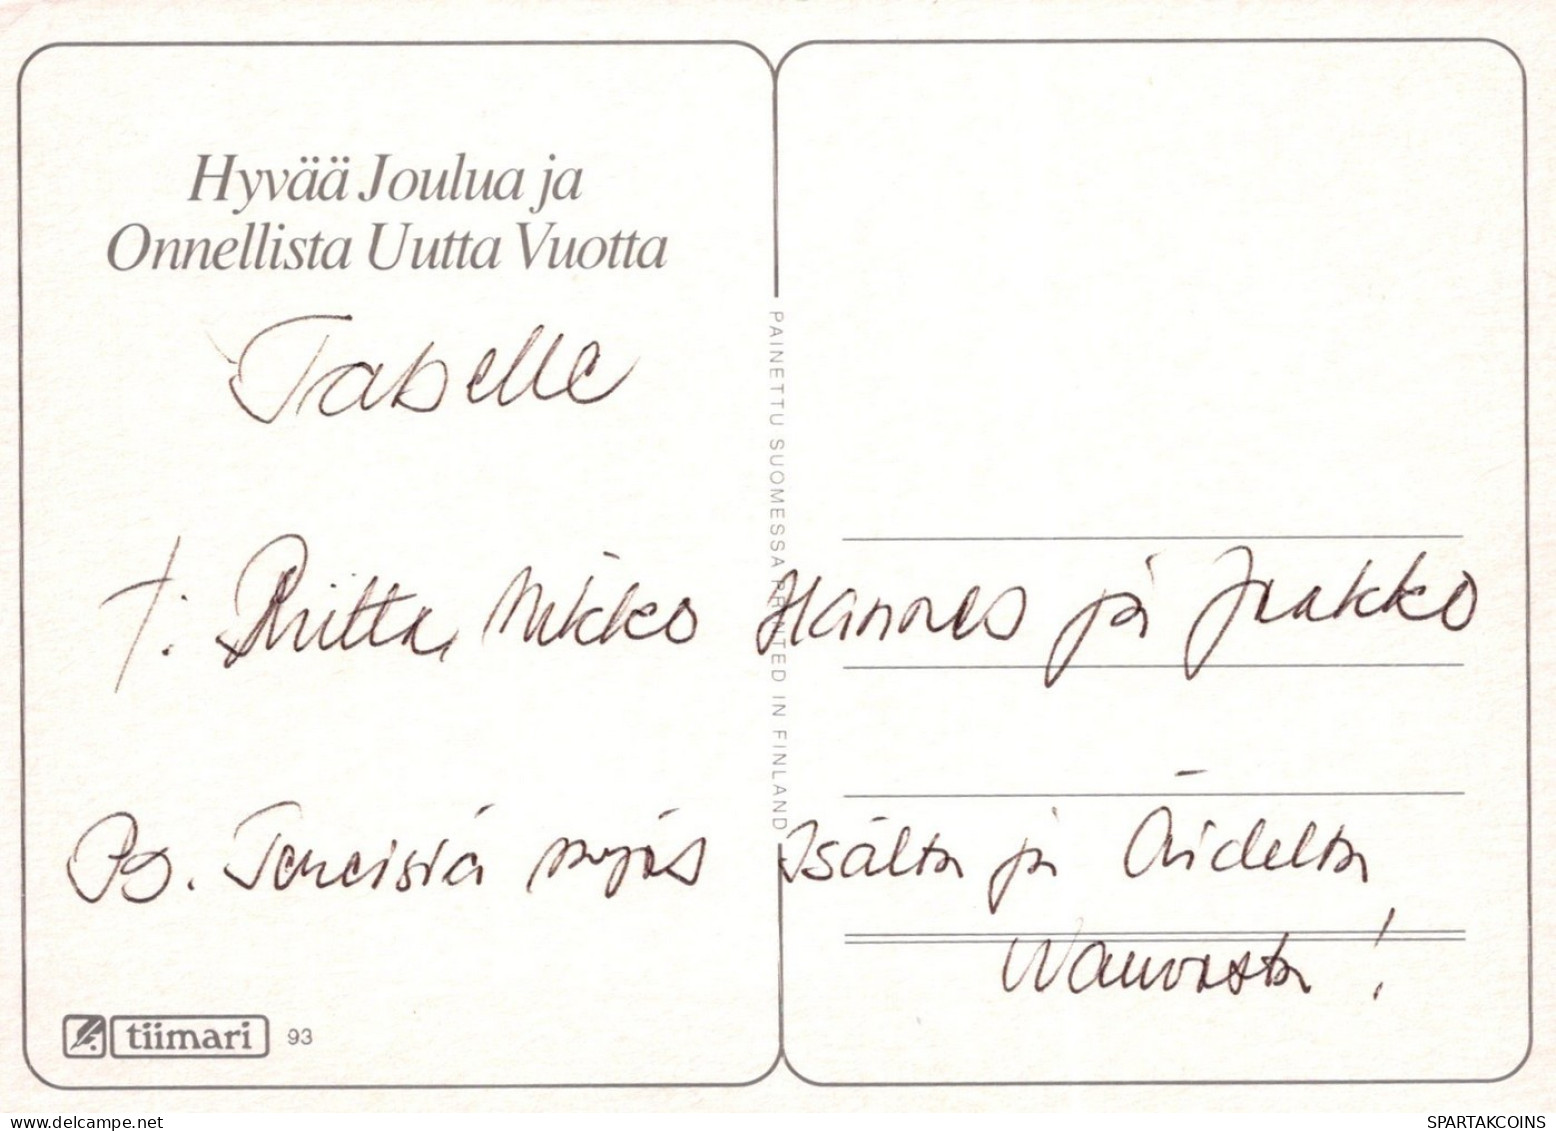 Hyvää Joulua ja
Onnellista Uutta Vuotta
T: Riitta, Mikko Hannes ja Jaakko
Ps. Terveisiä myös Isältä ja Äideltä
!
PAINETTU SUOMESSA PRINTED IN FINLAND
tiimari 93
https://www.delcampe.net
SPARTAKCOINS